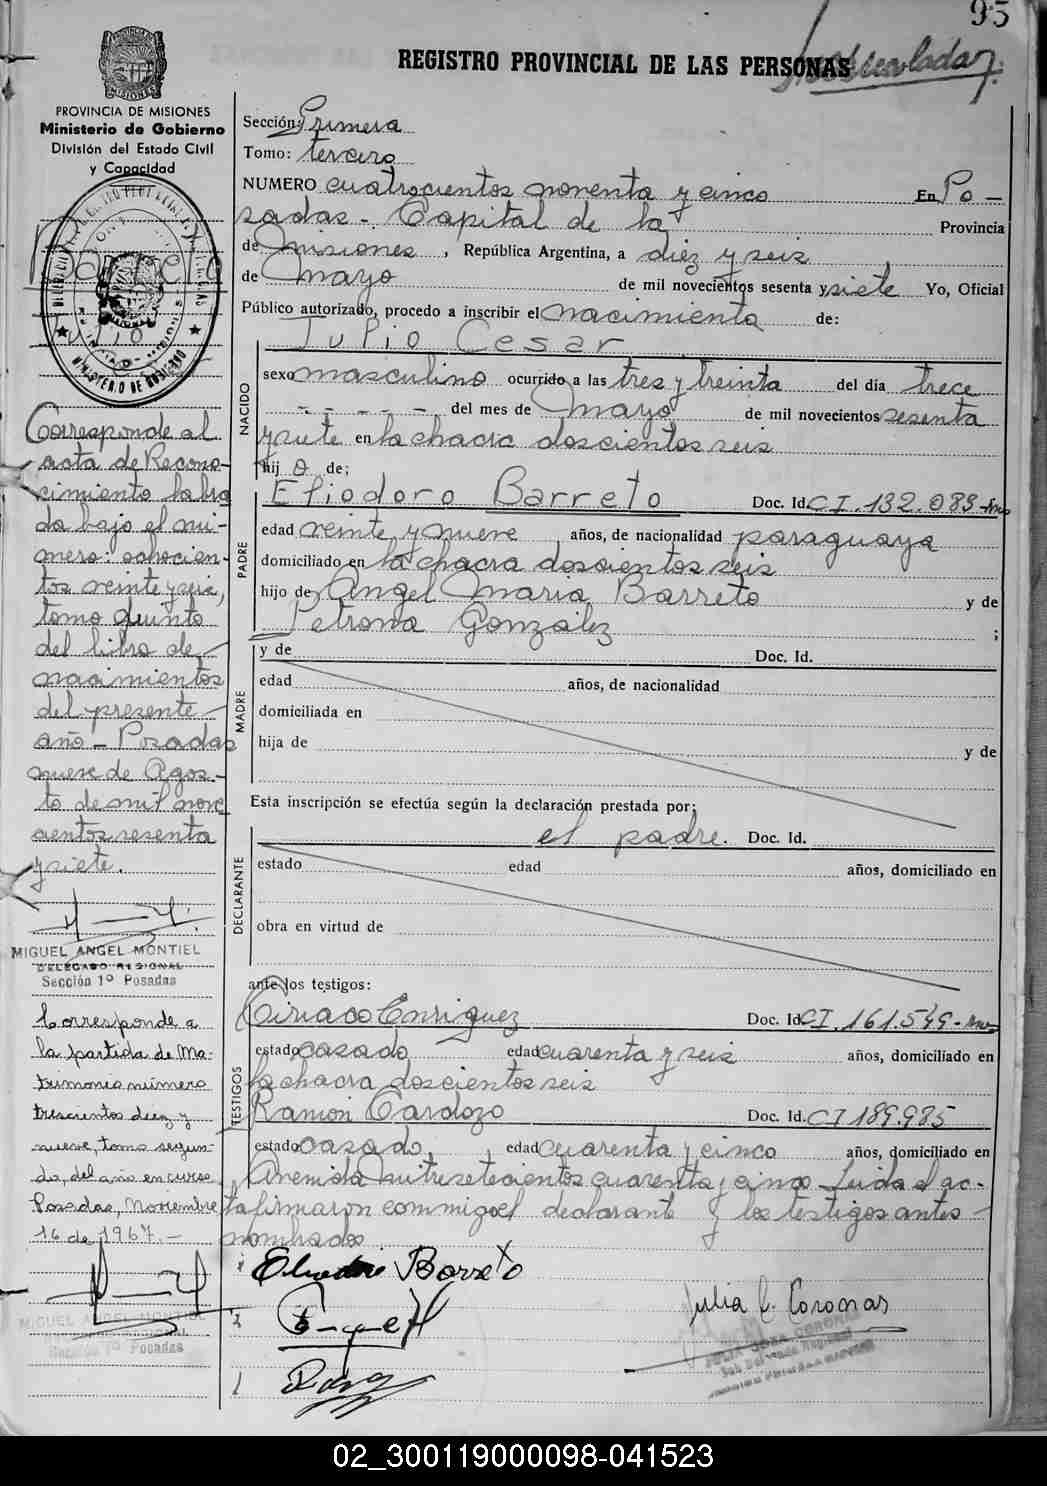 95
REGISTRO PROVINCIAL DE LAS PERSONAS
PROVINCIA DE MISIONES
Ministerio de Gobierno
División del Estado Civil
y Capacidad
Barreto
Julio
Corresponde al
acta de Recono-
cimiento labra
da bajo el nú-
mero: ochocien-
tos veinte y seis,
tomo quinto
del libro de
nacimientos
del presente
año - Posadas
nueve de Agos-
to de mil nove
cientos sesenta
y siete.
MIGUEL ANGEL MONTIEL
DELEGADO REGIONAL
Sección 1º Posadas
Corresponde a
la partida de Ma-
trimonio número
trescientos diez y
nueve, tomo segun-
do, del año en curso
Posadas, Noviembre
16 de 1967.-
MIGUEL ANGEL MONTIEL
Sección 1º Posadas
Sección: Primera
Tomo: tercero
NUMERO cuatrocientos noventa y cinco En Po-
sadas - Capital de la Provincia
de Misiones, República Argentina, a diez y seis
de mayo de mil novecientos sesenta y siete Yo, Oficial
Público autorizado, procedo a inscribir el nacimiento de:
Julio Cesar
NACIDO
sexo masculino ocurrido a las tres y treinta del día trece
- - - - - del mes de Mayo de mil novecientos sesenta
y siete en la chacra doscientos seis
hijo de;
PADRE
Eliodoro Barreto Doc. Id. CI. 132.083-Mns
edad veinte y nueve años, de nacionalidad paraguaya
domiciliado en la chacra doscientos seis
hijo de Angel Maria Barreto y de
Petrona González ;
MADRE
y de Doc. Id.
edad años, de nacionalidad
domiciliada en
hija de y de
Esta inscripción se efectúa según la declaración prestada por;
DECLARANTE
el padre. Doc. Id.
estado edad años, domiciliado en
obra en virtud de
ante los testigos:
TESTIGOS
Ciriaco Enriquez Doc. Id. CI. 161.549-Mns
estado casado edad cuarenta y seis años, domiciliado en
la chacra doscientos seis
Ramón Cardozo Doc. Id. CI 189.985
estado casado, edad cuarenta y cinco años, domiciliado en
Avenida Mitre setecientos cuarenta y cinco Leida el ac-
ta firmaron conmigo el declarante y los testigos antes
nombrados
Eliodoro Barreto
Julia C. Coronas
JULIA CORONAS
Sub Delegada Regional
02_300119000098-041523